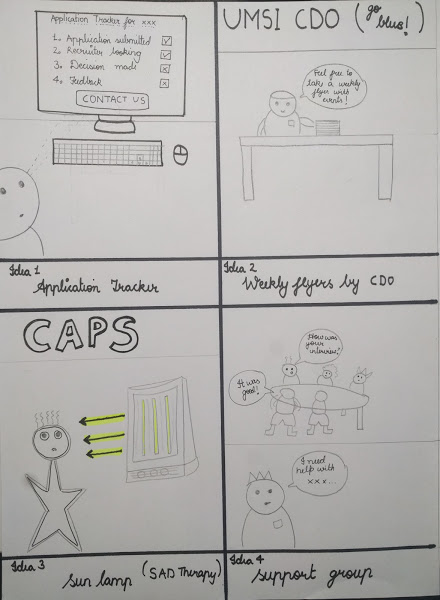 Application Tracker for xxx
1. Application submitted
2. Recruiter looking
3. Decision made
4. Fedback
CONTACT US
Idea 1
Application Tracker
UMSI CDO (go
blue!)
Feel free to
take a weekly
flyer with
events!
Idea 2
Weekly flyers by CDO
CAPS
Idea 3
sun lamp (SAD Therapy)
How was
your
interview?
It was
good!
I need
help with
xxx...
Idea 4
support group